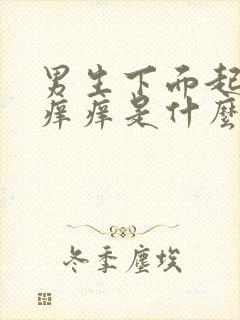 男生下而起
痒痒是什麼
冬季塵埃